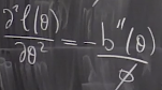 ∂²ℓ(θ)/∂θ² = -b''(θ)/φ